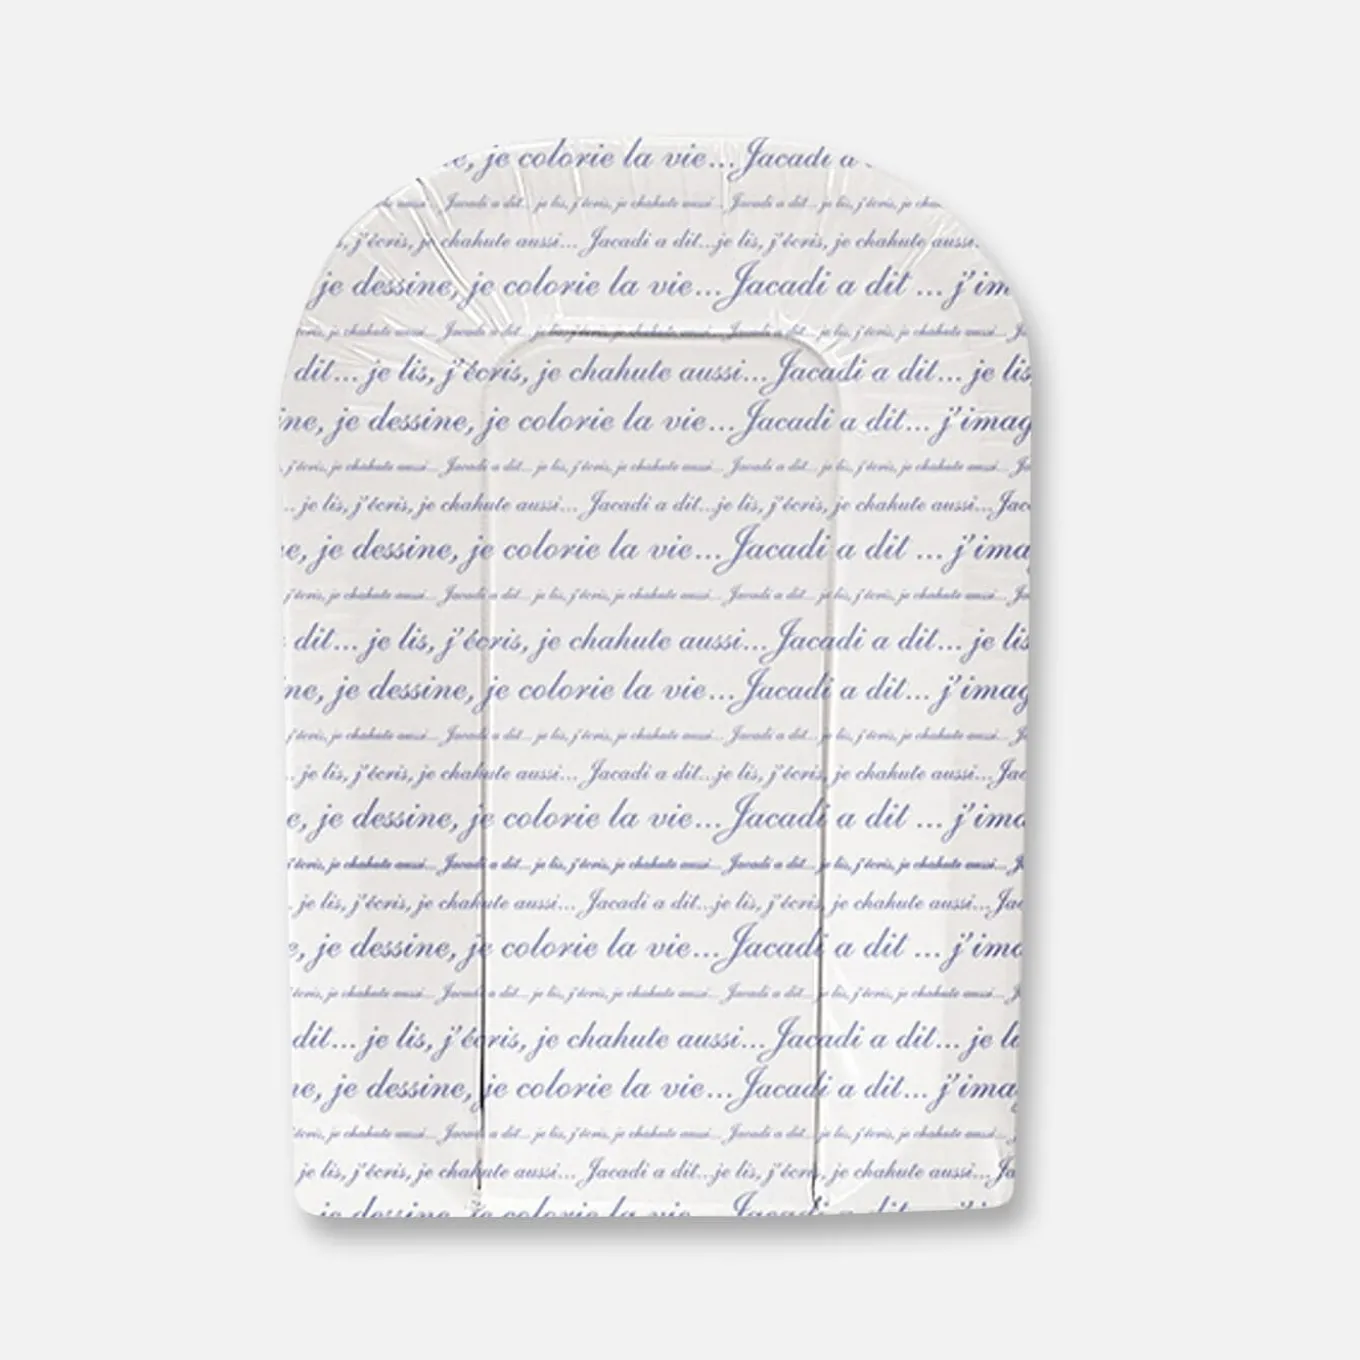 e, je colorie la vie... Jacadi a
aussi... Jacadi a dit... je lis, j'écris, je chahute aussi... Jacadi a dit... je lis, j'écris, je cha
s, j'écris, je chahute aussi... Jacadi a dit...je lis, j'écris, je chahute aussi.
je dessine, je colorie la vie...Jacadi a dit ... j'im
j'écris, je chahute aussi... Jacadi a dit... je lis, j'écris, je chahute aussi... Jacadi a dit... je lis, j'écris, je chahute aussi... J
dit... je lis, j'écris, je chahute aussi... Jacadi a dit... je lis
ine, je dessine, je colorie la vie...Jacadi a dit... j'imag
j'écris, je chahute aussi... Jacadi a dit... je lis, j'écris, je chahute aussi... Jacadi a dit... je lis, j'écris, je chahute aussi... Ja
... je lis, j'écris, je chahute aussi... Jacadi a dit...je lis, j'écris, je chahute aussi...Jac
e, je dessine, je colorie la vie...Jacadi a dit ... j'ima
j'écris, je chahute aussi... Jacadi a dit... je lis, j'écris, je chahute aussi... Jacadi a dit... je lis, j'écris, je chahute aussi... Ja
dit... je lis, j'écris, je chahute aussi... Jacadi a dit... je lis
ne, je dessine, je colorie la vie...Jacadi a dit... j'imag
j'écris, je chahute aussi... Jacadi a dit... je lis, j'écris, je chahute aussi... Jacadi a dit... je lis, j'écris, je chahute aussi... Ja
... je lis, j'écris, je chahute aussi... Jacadi a dit...je lis, j'écris, je chahute aussi...Jac
e, je dessine, je colorie la vie...Jacadi a dit ... j'ima
j'écris, je chahute aussi... Jacadi a dit... je lis, j'écris, je chahute aussi... Jacadi a dit... je lis, j'écris, je chahute aussi... Ja
. je lis, j'écris, je chahute aussi... Jacadi a dit...je lis, j'écris, je chahute aussi...Jac
e, je dessine, je colorie la vie...Jacadi a dit ... j'ima
j'écris, je chahute aussi... Jacadi a dit... je lis, j'écris, je chahute aussi... Jacadi a dit... je lis, j'écris, je chahute aussi... Ja
dit... je lis, j'écris, je chahute aussi... Jacadi a dit... je li
ne, je dessine, je colorie la vie...Jacadi a dit... j'imag
j'écris, je chahute aussi... Jacadi a dit... je lis, j'écris, je chahute aussi... Jacadi a dit... je lis, j'écris, je chahute aussi... J
je lis, j'écris, je chahute aussi... Jacadi a dit...je lis, j'écris, je chahute aussi...Ja
je dessine, je colorie la vie...Jacadi a dit ... j'i